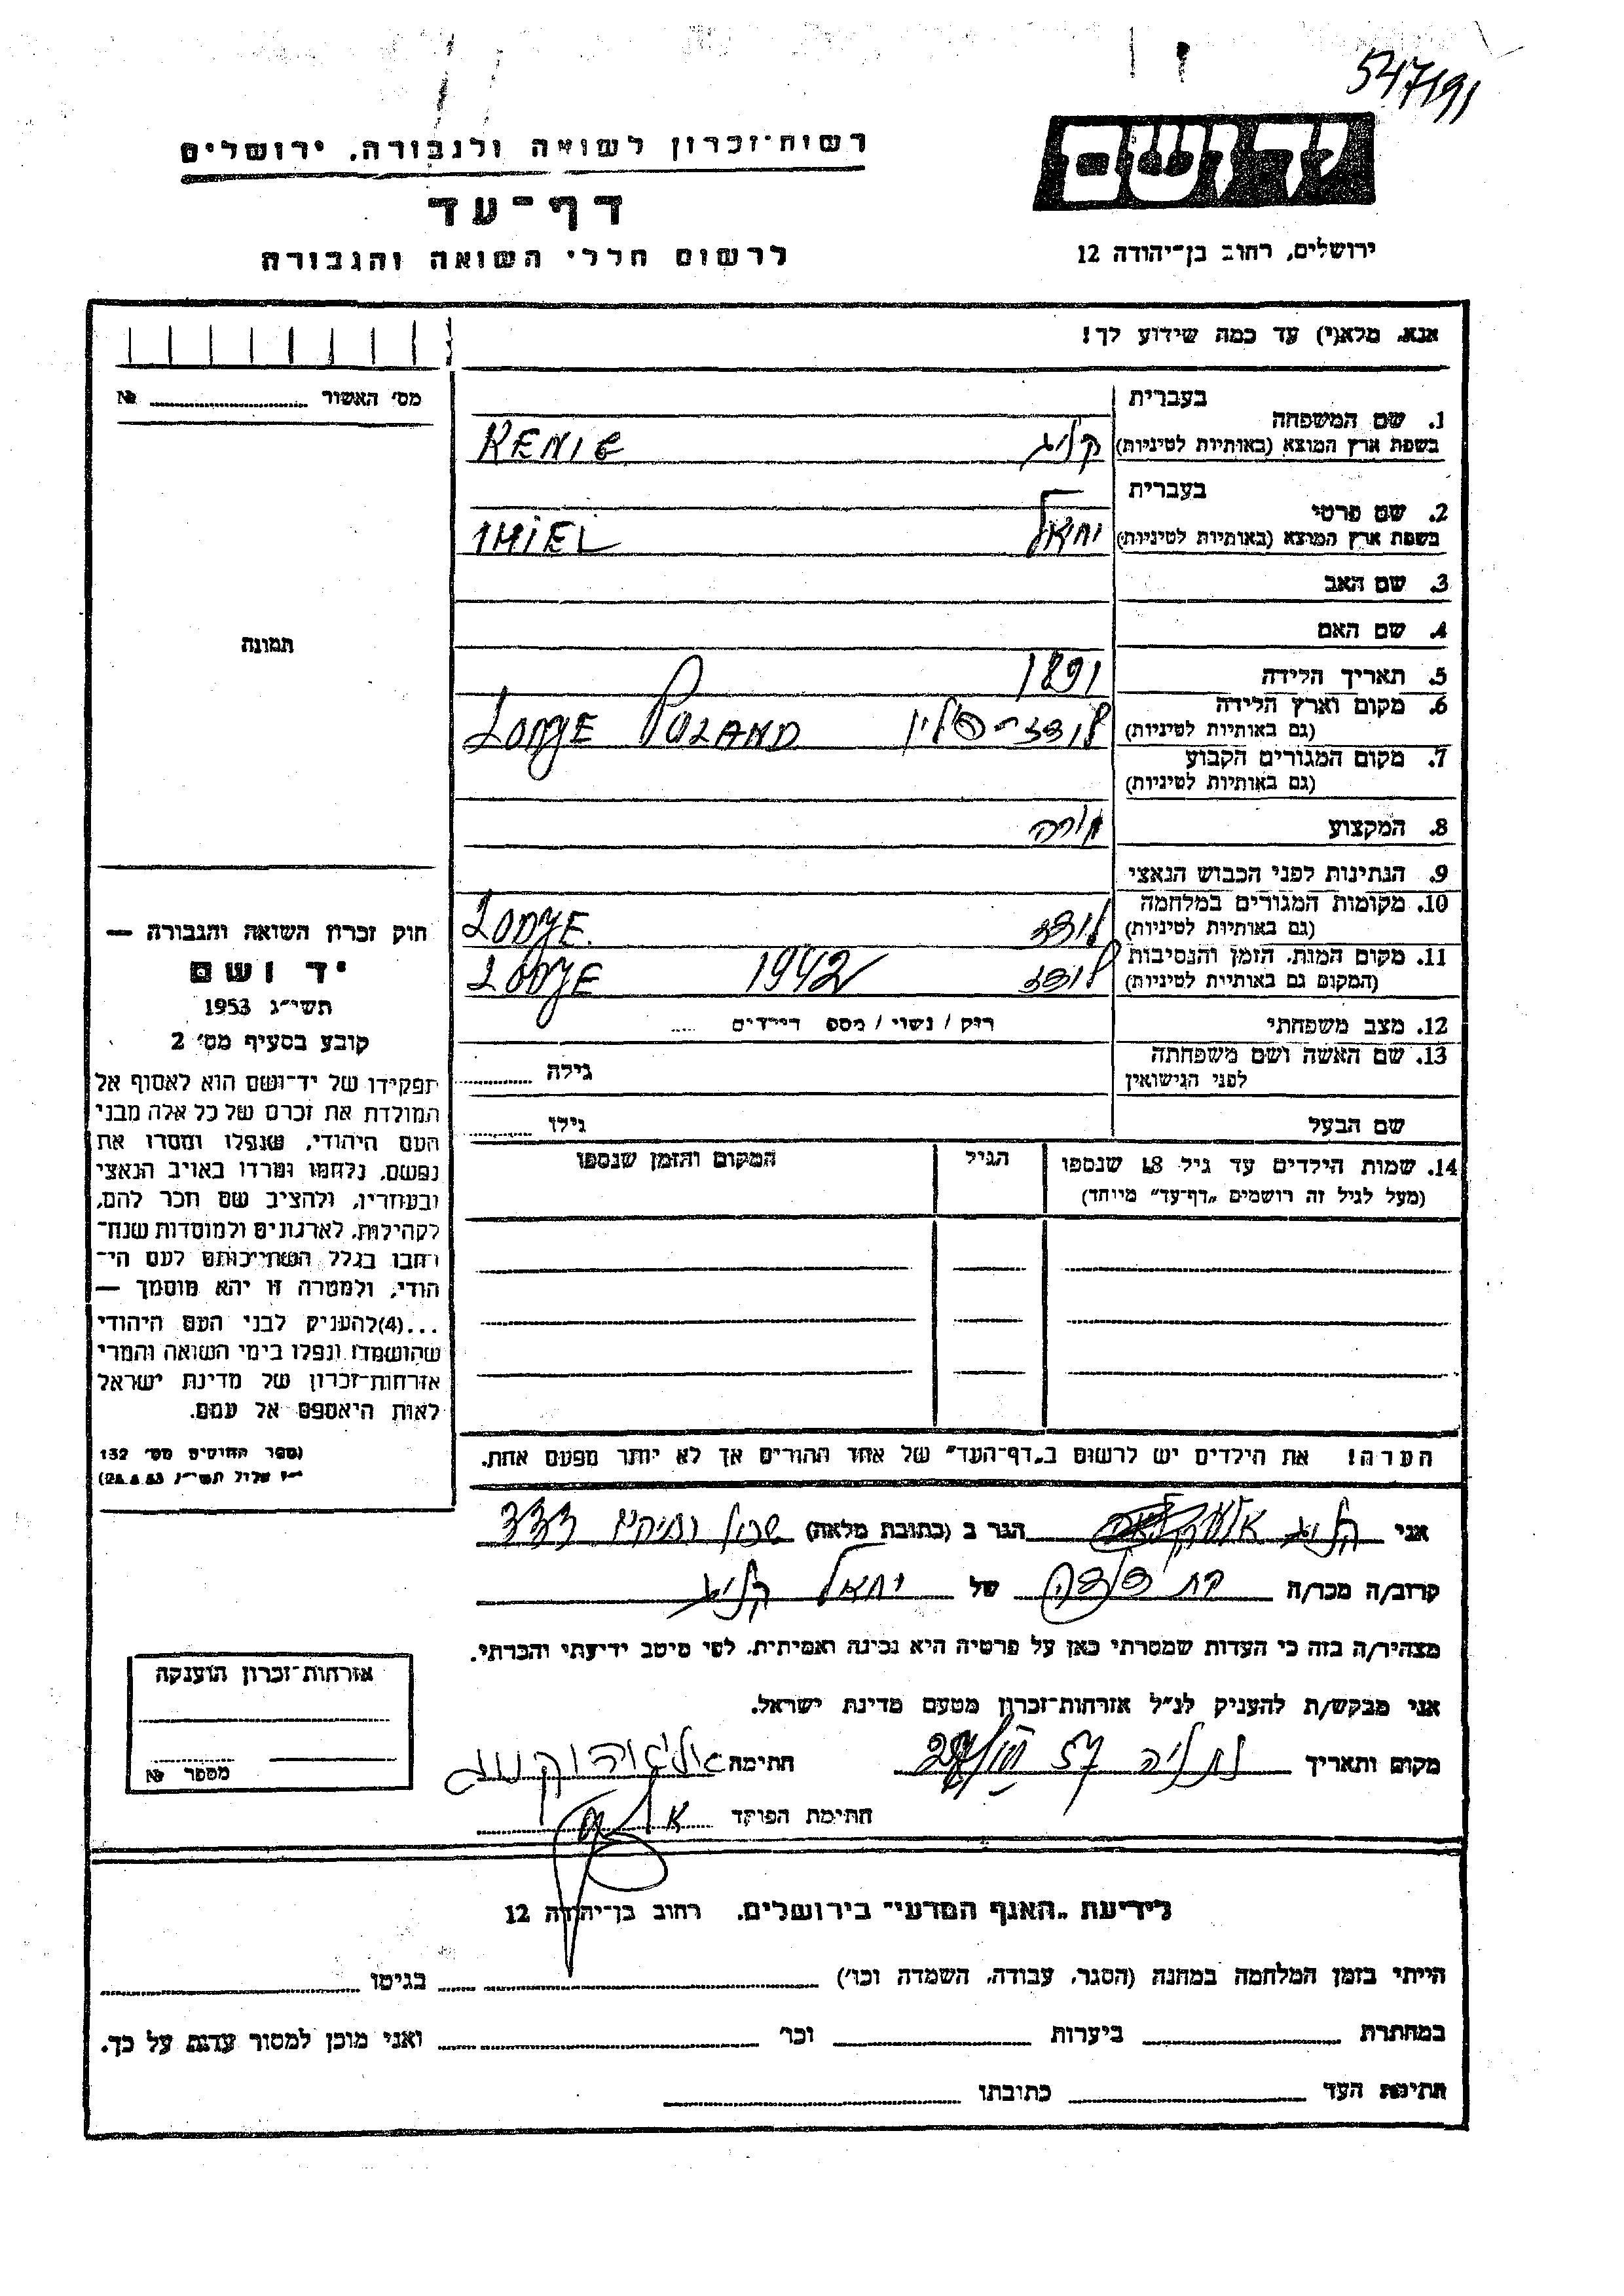 547191
רשות־זכרון לשואה ולגבורה. ירושלים
דף־עד
לרשום חללי השואה והגבורה
ידושם
ירושלים, רחוב בן־יהודה 12
אנא, מלא(י) עד כמה שידוע לך!
מס׳ האשור №
תמונה
חוק זכרון השואה והגבורה —
יד ושם
תשי״ג 1953
קובע בסעיף מס׳ 2
תפקידו של יד־ושם הוא לאסוף אל
המולדת את זכרם של כל אלה מבני
העם היהודי, שנפלו ומסרו את
נפשם, נלחמו ומרדו באויב הנאצי
ובעוזריו, ולהציב שם וזכר להם,
לקהילות, לארגונים ולמוסדות שנח־
רחבו בגלל השתייכותם לעם הי־
הודי, ולמטרה זו יהא מוסמך —
...(4) להעניק לבני העם היהודי
שהושמדו ונפלו בימי השואה והמרי
אזרחות־זכרון של מדינת ישראל
לאות היאספם אל עמם.
(ספר החוקים מס׳ 132
1. שם המשפחה בעברית
בשפת ארץ המוצא (באותיות לטיניות) RENIG
2. שם פרטי בעברית
בשפת ארץ המוצא (באותיות לטיניות) יחיאל IHIEL
3. שם האב
4. שם האם
5. תאריך הלידה 1891
6. מקום וארץ הלידה
(גם באותיות לטיניות) לודז־פולין LODZE POLAND
7. מקום המגורים הקבוע
(גם באותיות לטיניות)
8. המקצוע מורה
9. הנתינות לפני הכבוש הנאצי
10. מקומות המגורים במלחמה
(גם באותיות לטיניות) לודז LODZE.
11. מקום המות, הזמן והנסיבות
(המקום גם באותיות לטיניות) לודז 1942 LODZE
12. מצב משפחתי רווק / נשוי / מספר הילדים
13. שם האשה ושם משפחתה
לפני הנישואין גילה
שם הבעל גילו
14. שמות הילדים עד גיל 18 שנספו הגיל המקום והזמן שנספו
(מעל לגיל זה רושמים „דף־עד״ מיוחד)
הערה! את הילדים יש לרשום ב„דף־העד״ של אחד ההורים אך לא יותר מפעם אחת.
אני הגר ב (כתובת מלאה) שכון ותיקים 333
קרוב/ה מכר/ה בת דודה של יחיאל
מצהיר/ה בזה כי העדות שמסרתי כאן על פרטיה היא נכונה ואמיתית, לפי מיטב ידיעתי והכרתי.
אני מבקש/ת להעניק לנ״ל אזרחות־זכרון מטעם מדינת ישראל.
מקום ותאריך נתניה 57 חתימה
חתימת הפוקד
אזרחות־זכרון הוענקה
מספר №
לידיעת „האגף המדעי״ בירושלים, רחוב בן־יהודה 12
הייתי בזמן המלחמה במחנה (הסגר, עבודה, השמדה וכו׳) בגיטו
במחתרת ביערות וכו׳ ואני מוכן למסור עדות על כך.
חתימת העד כתובתו